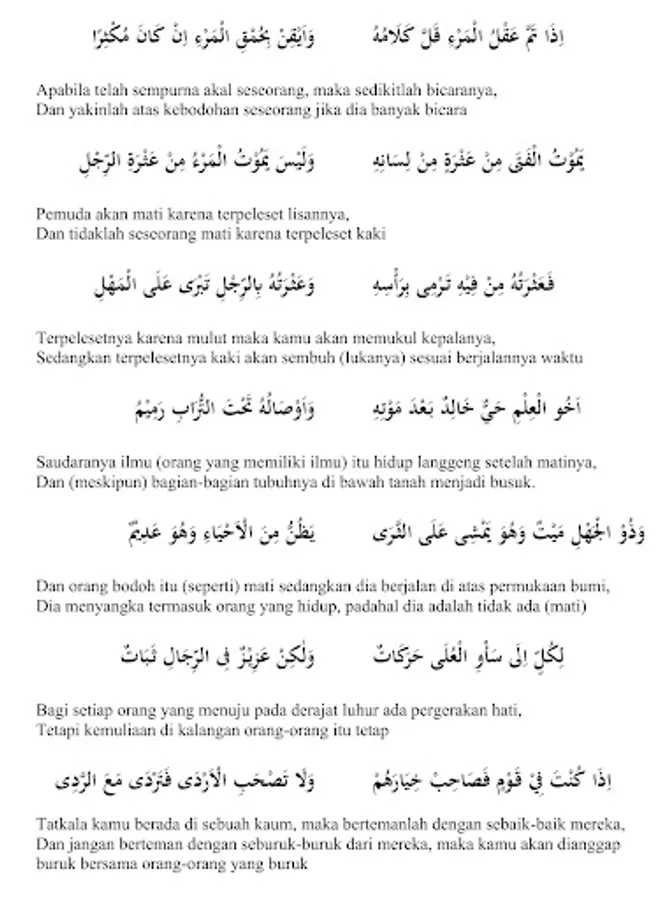 اِذَا تَمَّ عَقْلُ الْمَرْءِ قَلَّ كَلَامُهُ وَاَيْقِنْ بِحُمْقِ الْمَرْءِ اِنْ كَانَ مُكْثِرًا
Apabila telah sempurna akal seseorang, maka sedikitlah bicaranya,
Dan yakinlah atas kebodohan seseorang jika dia banyak bicara
يَمُوْتُ الْفَتَى مِنْ عَثْرَةٍ مِنْ لِسَانِهِ وَلَيْسَ يَمُوْتُ الْمَرْءُ مِنْ عَثْرَةِ الرِّجْلِ
Pemuda akan mati karena terpeleset lisannya,
Dan tidaklah seseorang mati karena terpeleset kaki
فَعَثْرَتُهُ مِنْ فِيْهِ تَرْمِى بِرَأْسِهِ وَعَثْرَتُهُ بِالرِّجْلِ تَبْرَى عَلَى الْمَهْلِ
Terpelesetnya karena mulut maka kamu akan memukul kepalanya,
Sedangkan terpelesetnya kaki akan sembuh (lukanya) sesuai berjalannya waktu
اَخُو الْعِلْمِ حَيٌّ خَالِدٌ بَعْدَ مَوْتِهِ وَاَوْصَالُهُ تَحْتَ التُّرَابِ رَمِيْمُ
Saudaranya ilmu (orang yang memiliki ilmu) itu hidup langgeng setelah matinya,
Dan (meskipun) bagian-bagian tubuhnya di bawah tanah menjadi busuk.
وَذُوْ الْجَهْلِ مَيْتٌ وَهُوَ يَمْشِى عَلَى الثَّرَى يَظُنُّ مِنَ الْاَحْيَاءِ وَهُوَ عَدِيْمٌ
Dan orang bodoh itu (seperti) mati sedangkan dia berjalan di atas permukaan bumi,
Dia menyangka termasuk orang yang hidup, padahal dia adalah tidak ada (mati)
لِكُلٍّ اِلَى سَأْوِ الْعُلَى حَرَكَاتٌ وَلٰكِنْ عَزِيْزٌ فِى الرِّجَالِ ثَبَاتٌ
Bagi setiap orang yang menuju pada derajat luhur ada pergerakan hati,
Tetapi kemuliaan di kalangan orang-orang itu tetap
اِذَا كُنْتَ فِيْ قَوْمٍ فَصَاحِبْ خِيَارَهُمْ وَلَا تَصْحَبِ الْاَرْدَى فَتَرْدَى مَعَ الرَّدِى
Tatkala kamu berada di sebuah kaum, maka bertemanlah dengan sebaik-baik mereka,
Dan jangan berteman dengan seburuk-buruk dari mereka, maka kamu akan dianggap
buruk bersama orang-orang yang buruk